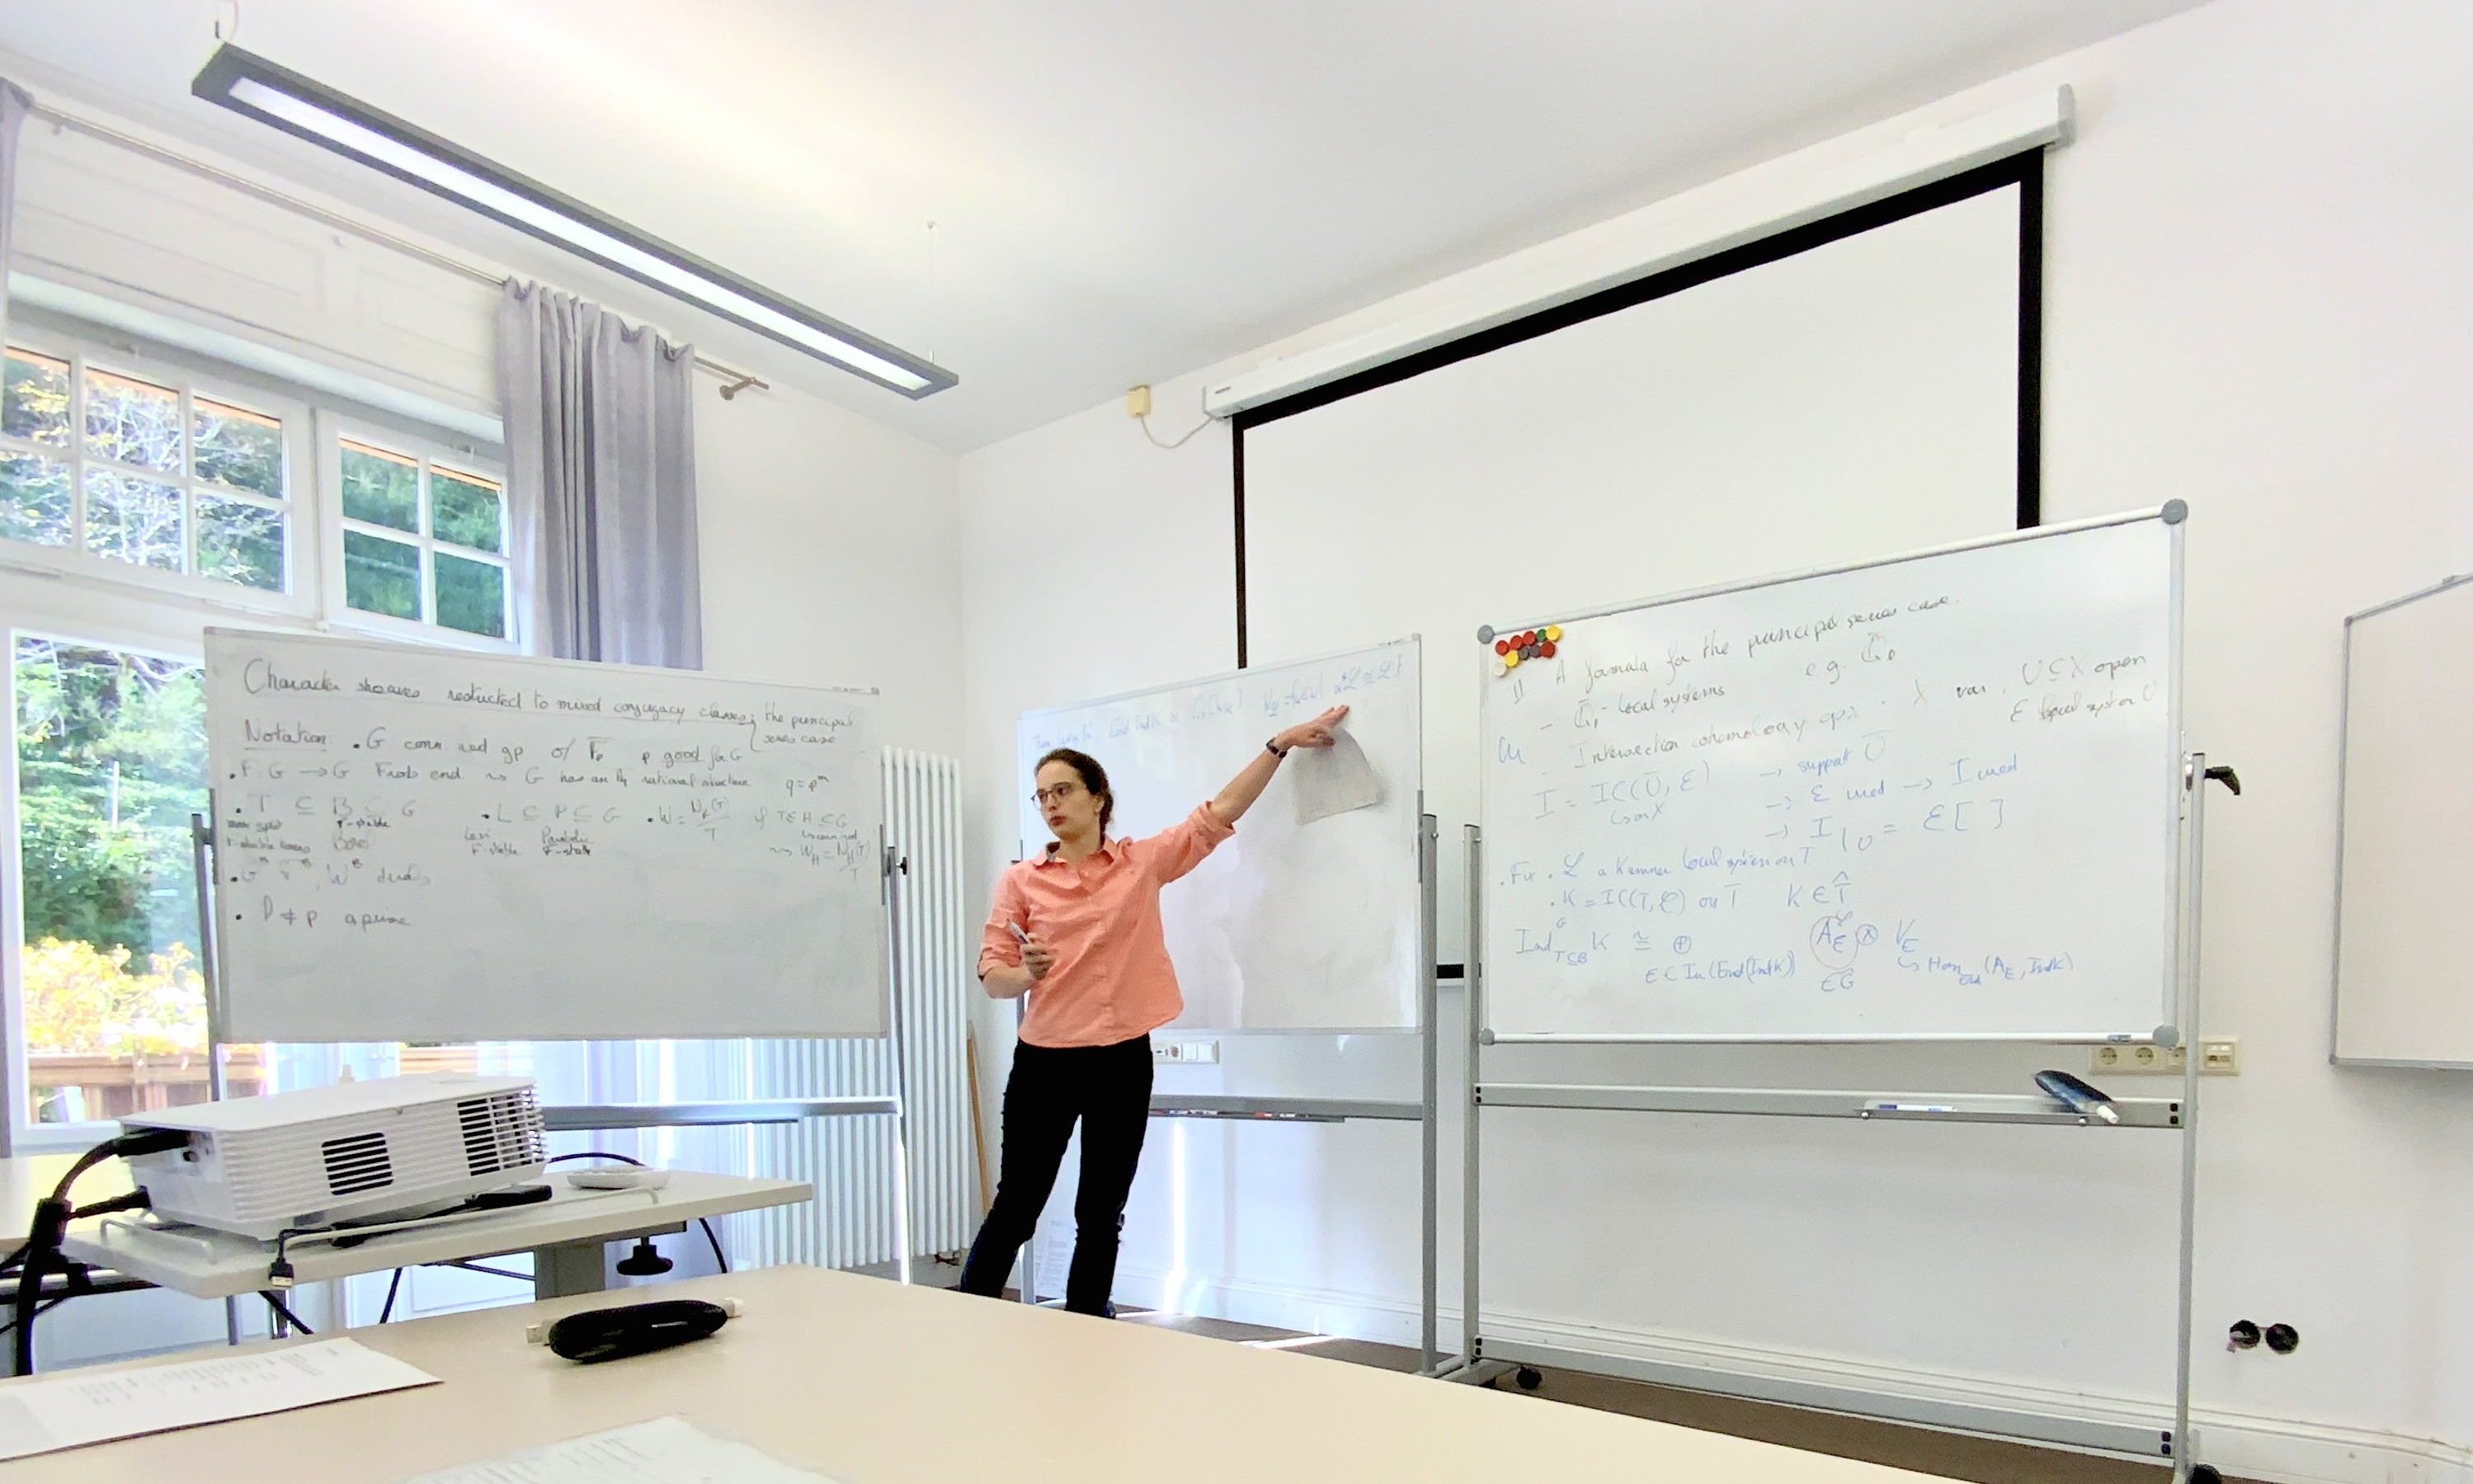 Character sheaves restricted to mixed conjugacy classes; the principal
series case
Notation: • G conn red gp o/ F̄p p good for G
• F: G → G Frob end. ⇝ G has an Fq rational structure q = pᵐ
• T ⊆ B ⊆ G • L ⊆ P ⊆ G • W = N_G(T)/T if T ⊆ H ⊆ G
max split F-stable Levi Parabolic ↳ conn red
F-stable torus Borel F-stable F-stable ⇝ W_H = N_H(T)/T
• G* T*, W* duals
• l ≠ p a prime
End Ind K ≅
II A formula for the principal series case.
- Q̄l - local systems e.g. Q̄l
- Intersection cohomology cpx . X var, U ⊆ X open
ℰ local syst on U
I = IC(Ū, ℰ) → support Ū
↳ on X → ℰ irred → I irred
→ I|_U = ℰ[ ]
• Fix • ℒ a Kummer local system on T
• K = IC(T, ℒ) on T K ∈ T̂
Ind^G_{T⊆B} K ≅ ⊕ A_E^ℒ ⊗ V_E
E ∈ Irr(End(Ind K)) ∈ Ĝ ↳ Hom_End(A_E, Ind K)